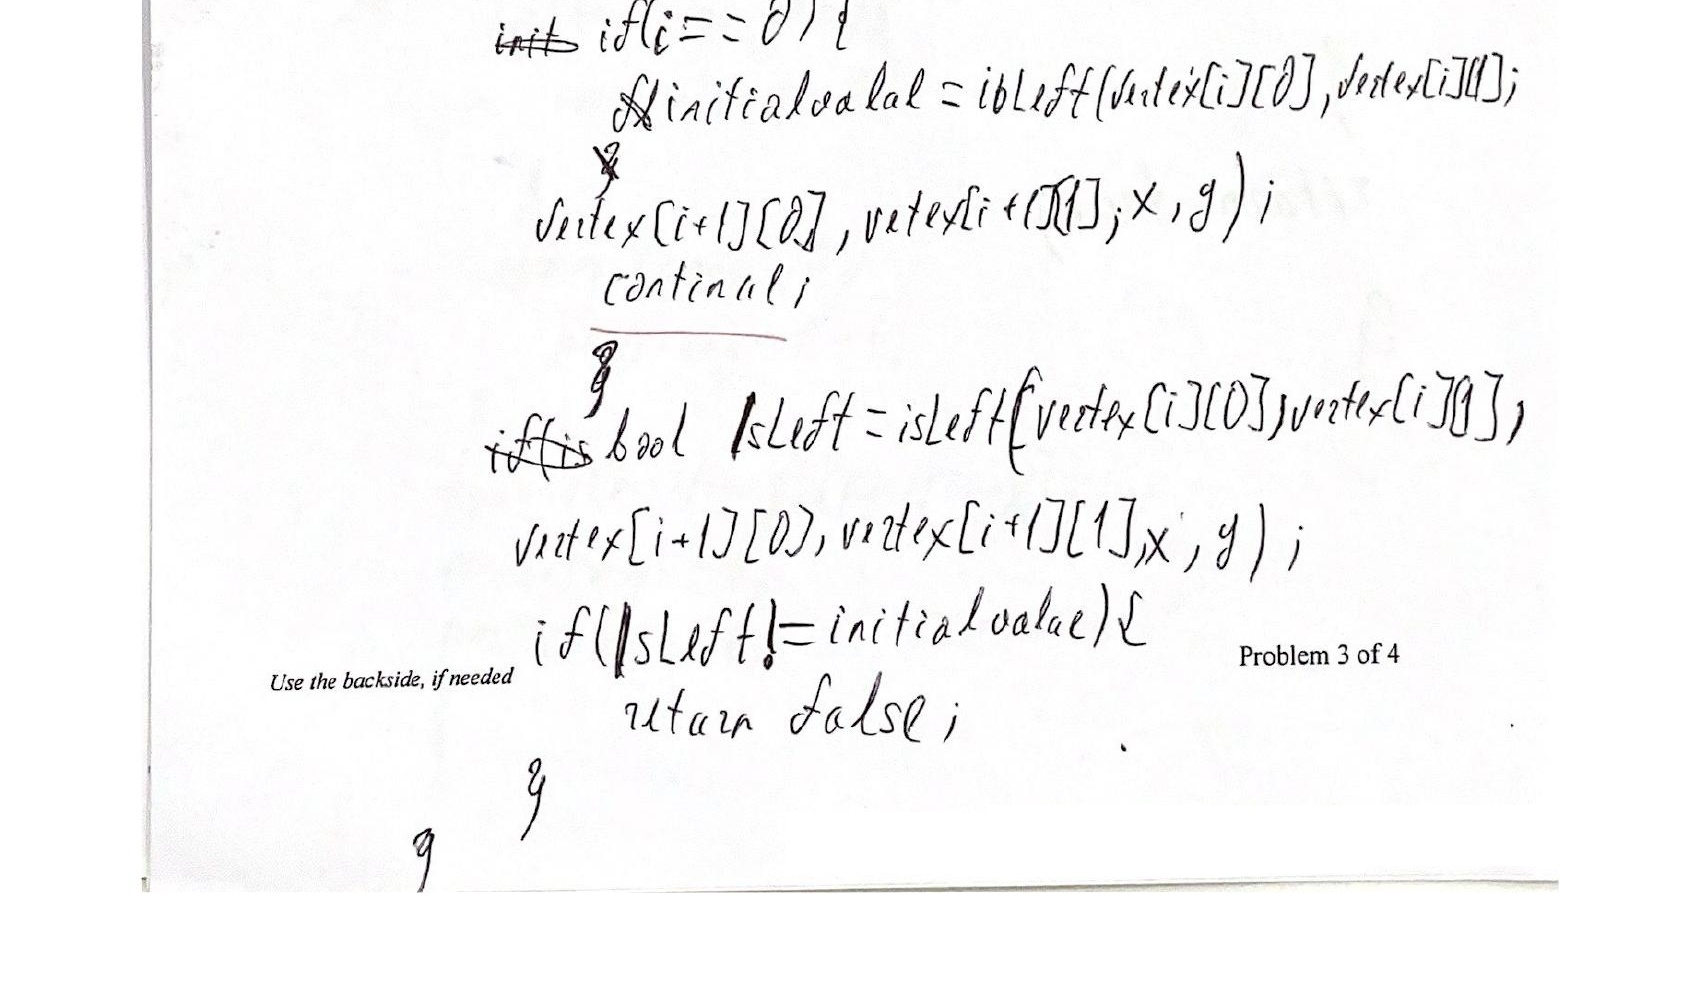 if(i==0){
initialvalal = isLeft(vertex[i][0], vertex[i][1];
}
vertex[i+1][0], vetex[i+1][1], x, y);
continue;
}
bool IsLeft = isLeft(vertex[i][0], vertex[i][1],
vertex[i+1][0], vertex[i+1][1], x, y);
if(IsLeft != initialvalue){
Problem 3 of 4
Use the backside, if needed
return false;
}
}